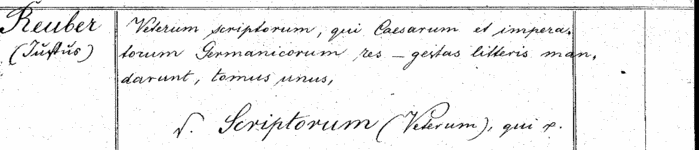 Reuber
(Justus)
Veterum scriptorum, qui Caesarum et impera-
torum Germanicorum res-gestas litteris man-
darunt, tomus unus,
v. Scriptorum (Veterum), qui &.